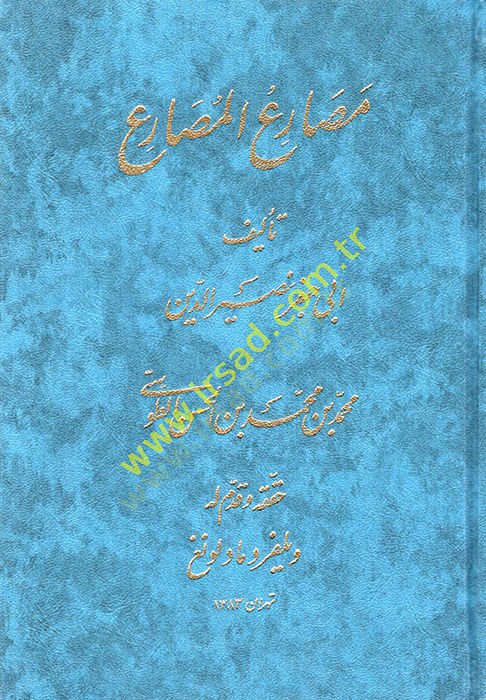 مَصَارِعُ المُصَارِع
تأليف
ابي جعفر نصير الدين
محمّد بن محمّد بن الحسن الطوسيّ
حققه و قدّم له
ويلفرد مادلونغ
تهران ۱۳۸۳
www.irsad.com.tr